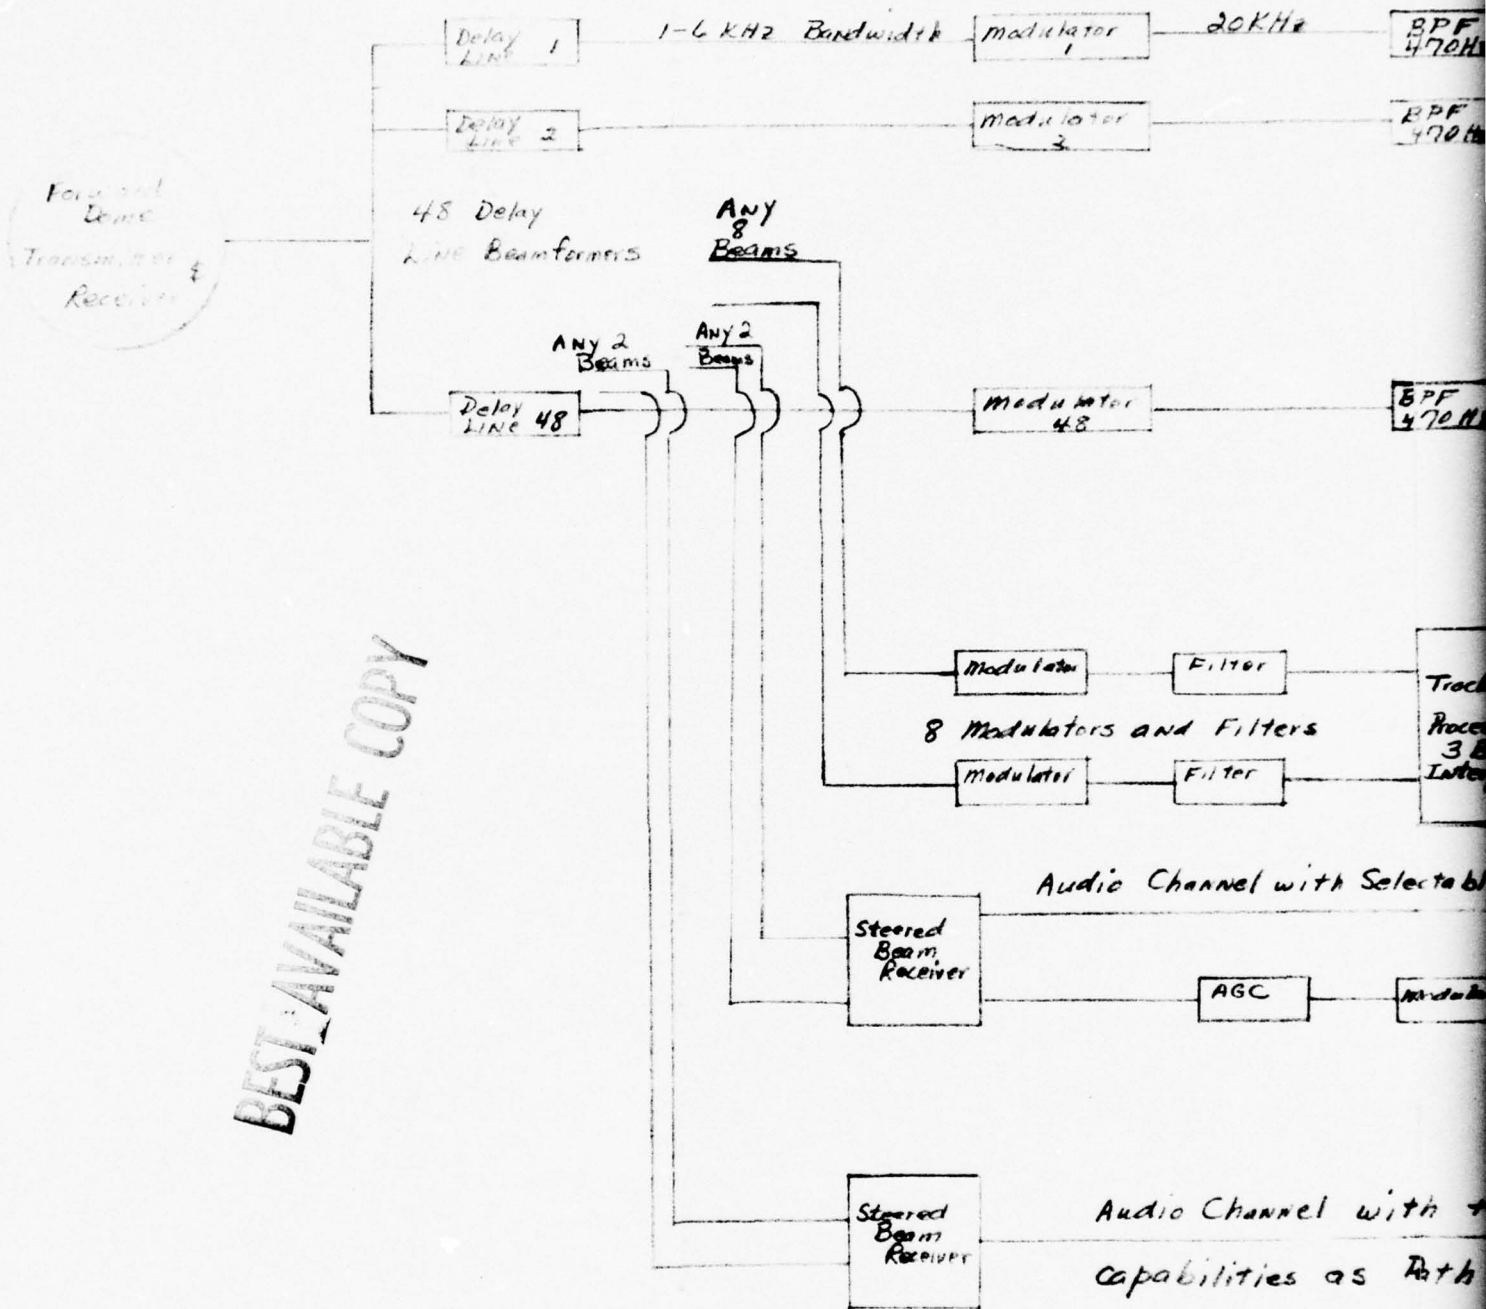 Delay
LINE 1
1-6 KHz Bandwidth
Modulator
1
20KHz
BPF
470H
Delay
LINE 2
Modulator
BPF
470H
Dome
Transmitter &
Receiver
48 Delay
LINE Beamformers
ANY
8
Beams
ANY 2
Beams
ANY 2
Beams
Delay
LINE 48
Modulator
48
BPF
470H
Modulator
Filter
8 Modulators and Filters
Modulator
Filter
Proce
3 B
Inte
Audio Channel with Selectabl
Steered
Beam
Receiver
AGC
BEST AVAILABLE COPY
Steered
Beam
Receiver
Audio Channel with
capabilities as Path